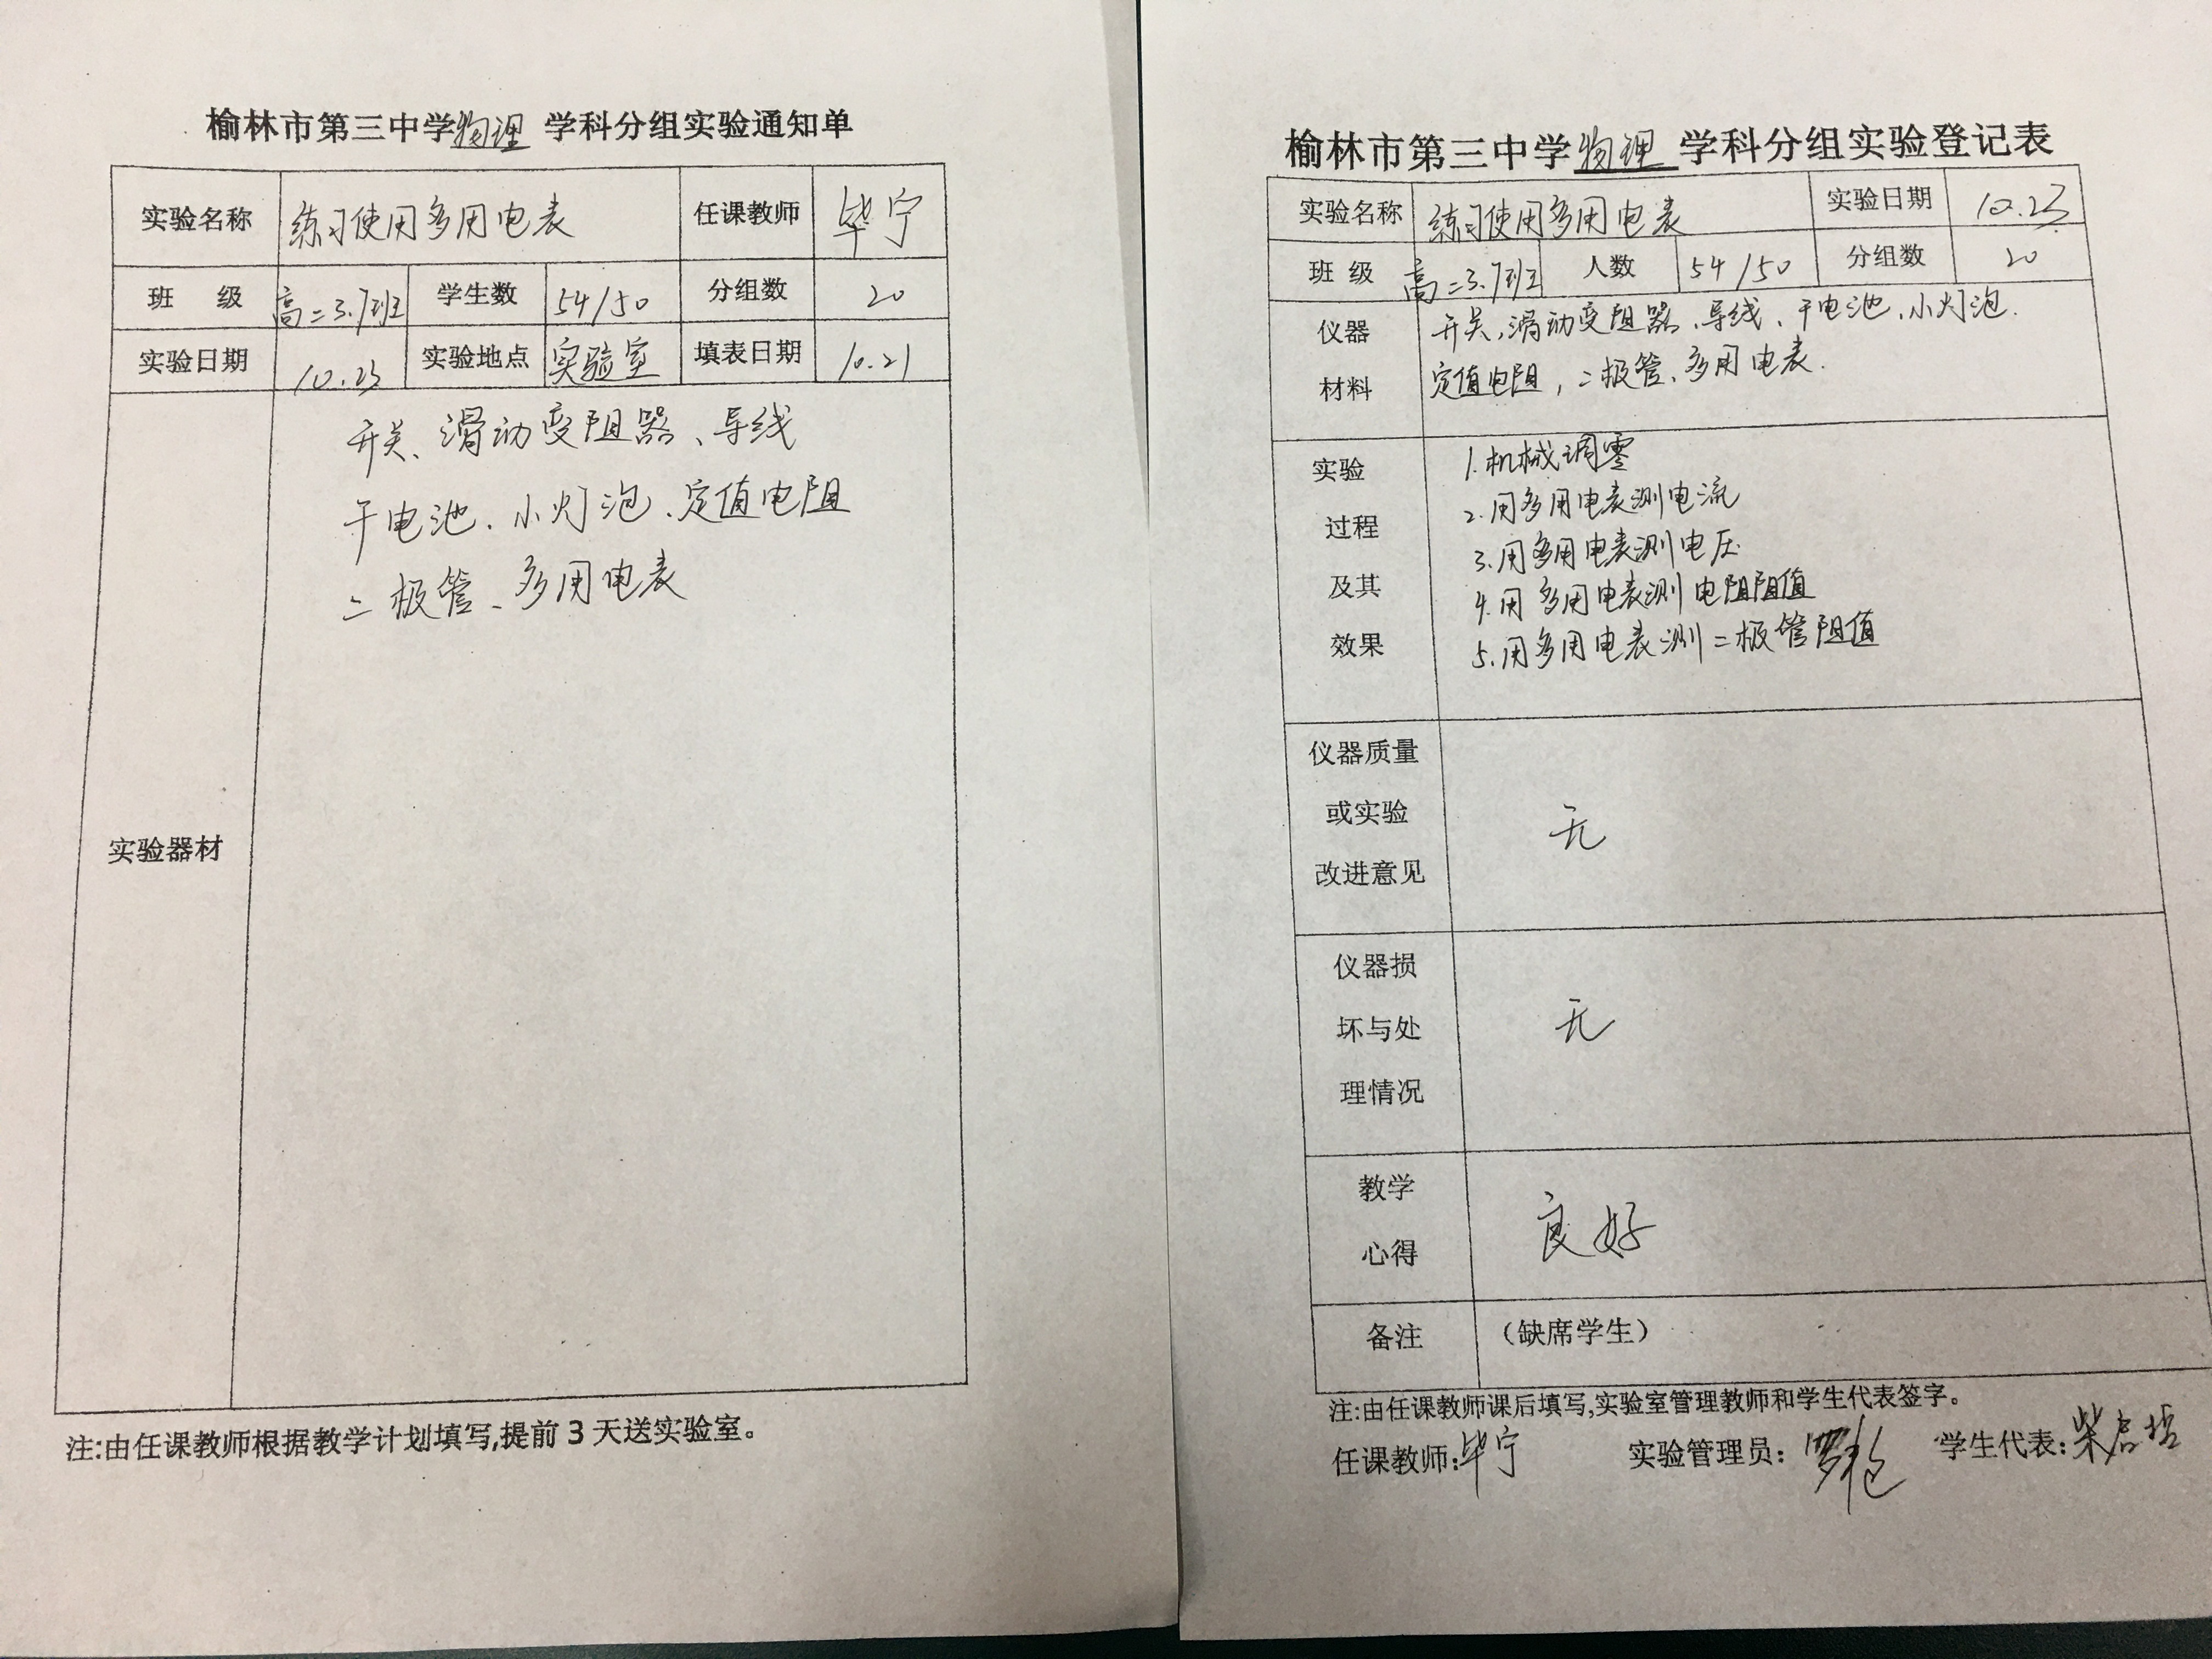 榆林市第三中学物理 学科分组实验通知单
实验名称 练习使用多用电表 任课教师 毕宁
班 级 高二3.7班 学生数 54/50 分组数 20
实验日期 10.23 实验地点 实验室 填表日期 10.21
实验器材
开关、滑动变阻器、导线
干电池、小灯泡、定值电阻
二极管、多用电表
注:由任课教师根据教学计划填写,提前 3 天送实验室。
榆林市第三中学物理 学科分组实验登记表
实验名称 练习使用多用电表 实验日期 10.23
班 级 高二3.7班 人数 54/50 分组数 20
仪器 开关,滑动变阻器、导线、干电池、小灯泡.
材料 定值电阻,二极管、多用电表.
实验 1.机械调零
2.用多用电表测电流
过程 3.用多用电表测电压
及其 4.用多用电表测电阻阻值
效果 5.用多用电表测二极管阻值
仪器质量
或实验 无
改进意见
仪器损
坏与处 无
理情况
教学
心得 良好
备注 （缺席学生）
注:由任课教师课后填写,实验室管理教师和学生代表签字。
任课教师:毕宁 实验管理员: 学生代表: